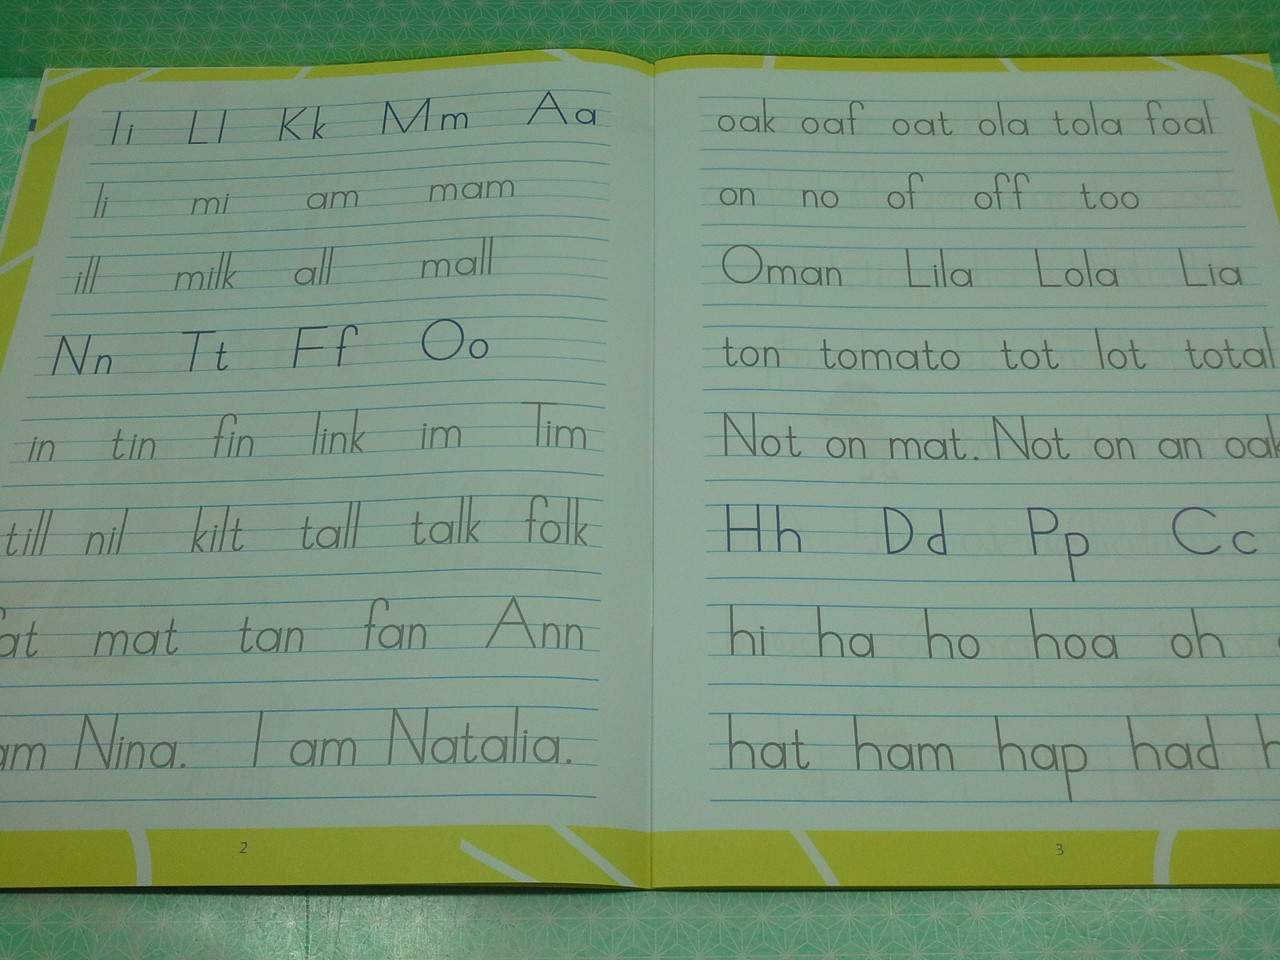 Ii Ll Kk Mm Aa
li mi am mam
ill milk all mall
Nn Tt Ff Oo
in tin fin link im Tim
till nil kilt tall talk folk
mat tan fan Ann
am Nina. I am Natalia.
2
oak oaf oat ola tola foal
on no of off too
Oman Lila Lola Lia
ton tomato tot lot total
Not on mat. Not on an oak
Hh Dd Pp Cc
hi ha ho hoa oh
hat ham hap had
3